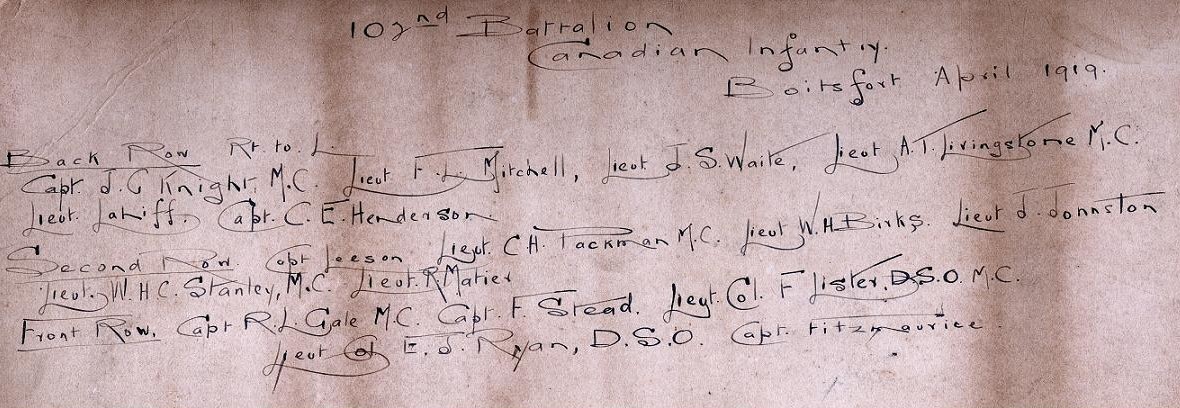 102nd Battalion
Canadian Infantry.
Boitsfort April 1919.
Back Row Rt. to. L.
Capt. J. G Knight, M.C. Lieut F. L. Mitchell, Lieut J. S. Waite, Lieut A. T. Livingstone M.C.
Lieut. Lahiff. Capt. C. E. Henderson.
Second Row. Capt Leeson Lieut. C. H. Packman M.C. Lieut W. H Birks. Lieut J. Johnston
Lieut. W. H. C. Stanley, M.C. Lieut. R. Matier
Front Row. Capt R. L. Gale M.C. Capt. F. Stead. Lieut. Col. F Lister. D.S.O. M.C.
Lieut Col E. J. Ryan, D.S.O. Capt. Fitzmaurice.